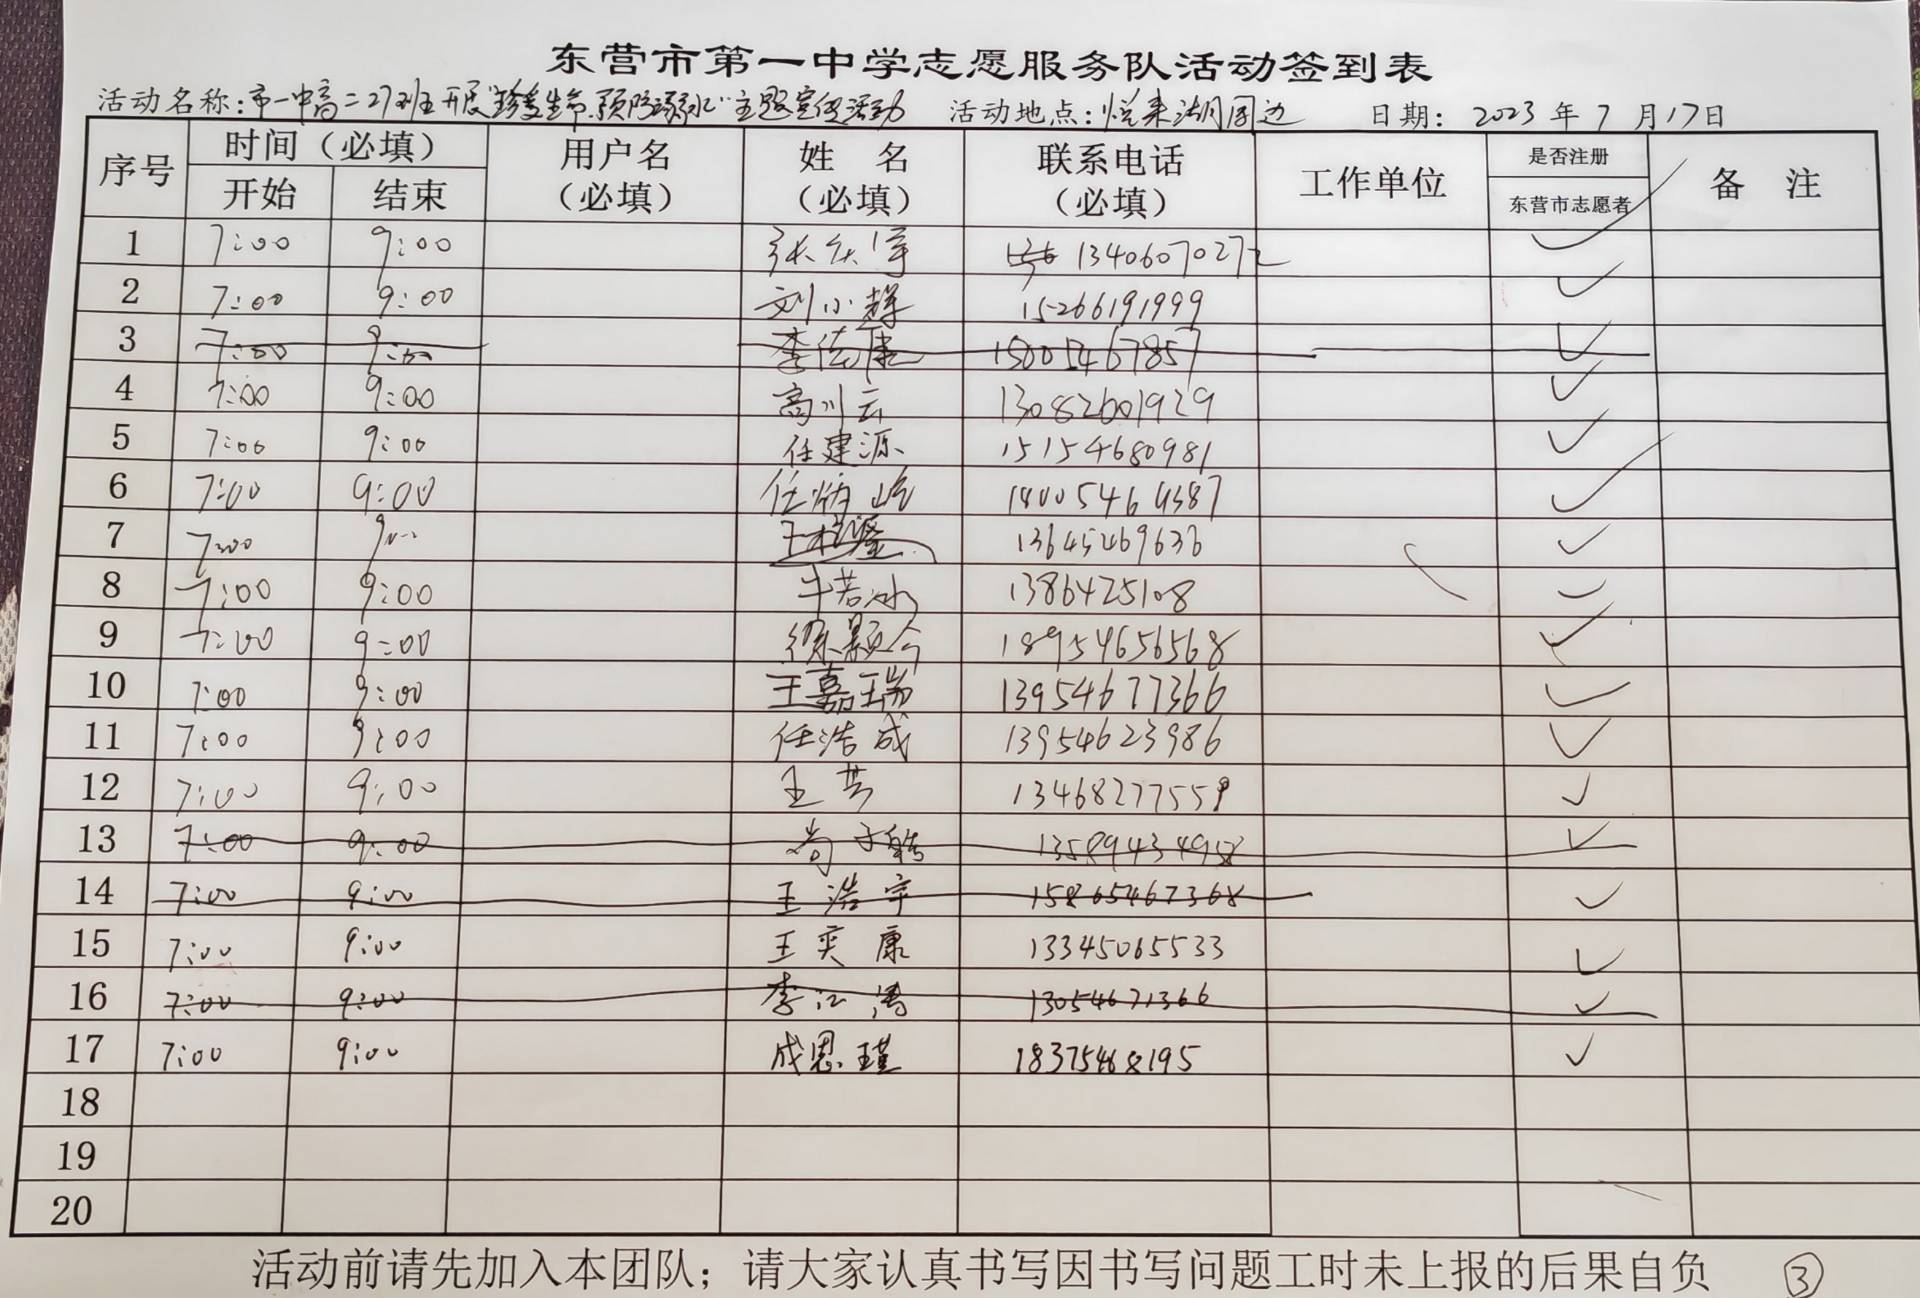 东营市第一中学志愿服务队活动签到表
活动名称:市一中高二27班开展"珍爱生命.预防溺水"主题宣传活动 活动地点:悦来湖周边 日期: 2023 年 7 月 17日
序号 时间(必填) 用户名 姓 名 联系电话 工作单位 是否注册 备 注
开始 结束 (必填) (必填) (必填) 东营市志愿者
1 7:00 9:00 13406070272 ✓
2 7:00 9:00 刘小辉 15266191999 ✓
3 7:00 9:00 15005467857 ✓
4 7:00 9:00 高川云 13082601929 ✓
5 7:00 9:00 任建源 15154680981 ✓
6 7:00 9:00 任炳屹 ✓
7 7:00 13645469636 ✓
8 7:00 9:00 牛若冰 1386425108
9 7:00 9:00 徐颢今 18954656568 ✓
10 7:00 9:00 王嘉瑞 13954677366 ✓
11 7:00 9:00 任浩成 13954623986 ✓
12 7:00 9:00 王芳 13468277559 ✓
13 7:00 9:00 尚子皓 13589434958 ✓
14 7:00 9:00 王浩宇 15865467368 ✓
15 7:00 9:00 王奕康 13345065533 ✓
16 7:00 9:00 李江涛 13054671366 ✓
17 7:00 9:00 成思瑾 18375468195 ✓
18
19
20
活动前请先加入本团队；请大家认真书写因书写问题工时未上报的后果自负 ③